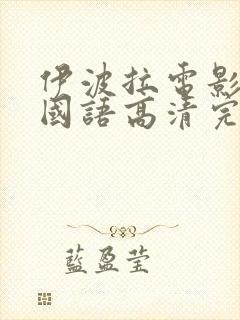 伊波拉電影
國語高清完
藍盈莹